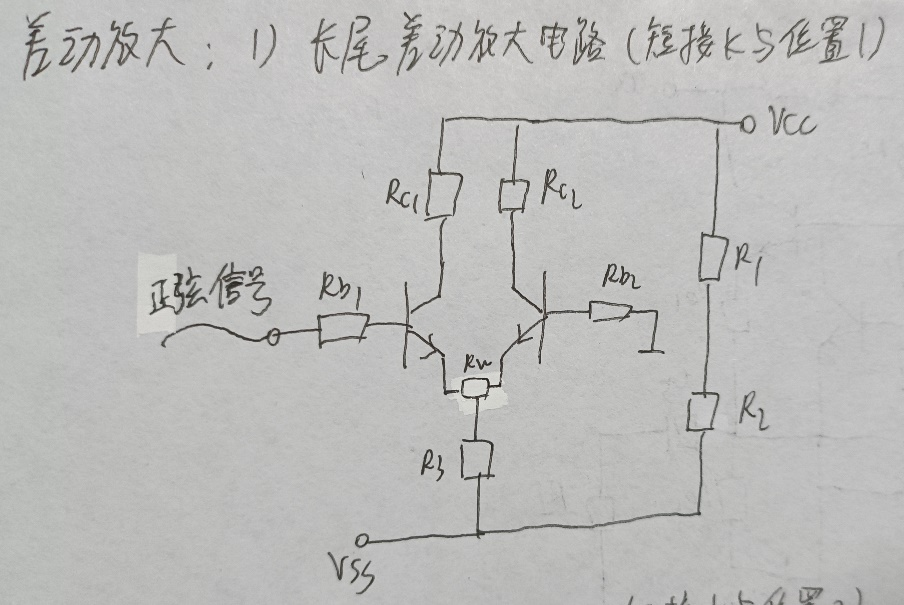 差动放大：1）长尾差动放大电路（短接K与位置1）
VCC
Rc1
Rc2
R1
正弦信号
Rb1
Rb2
Rw
R2
R3
VSS